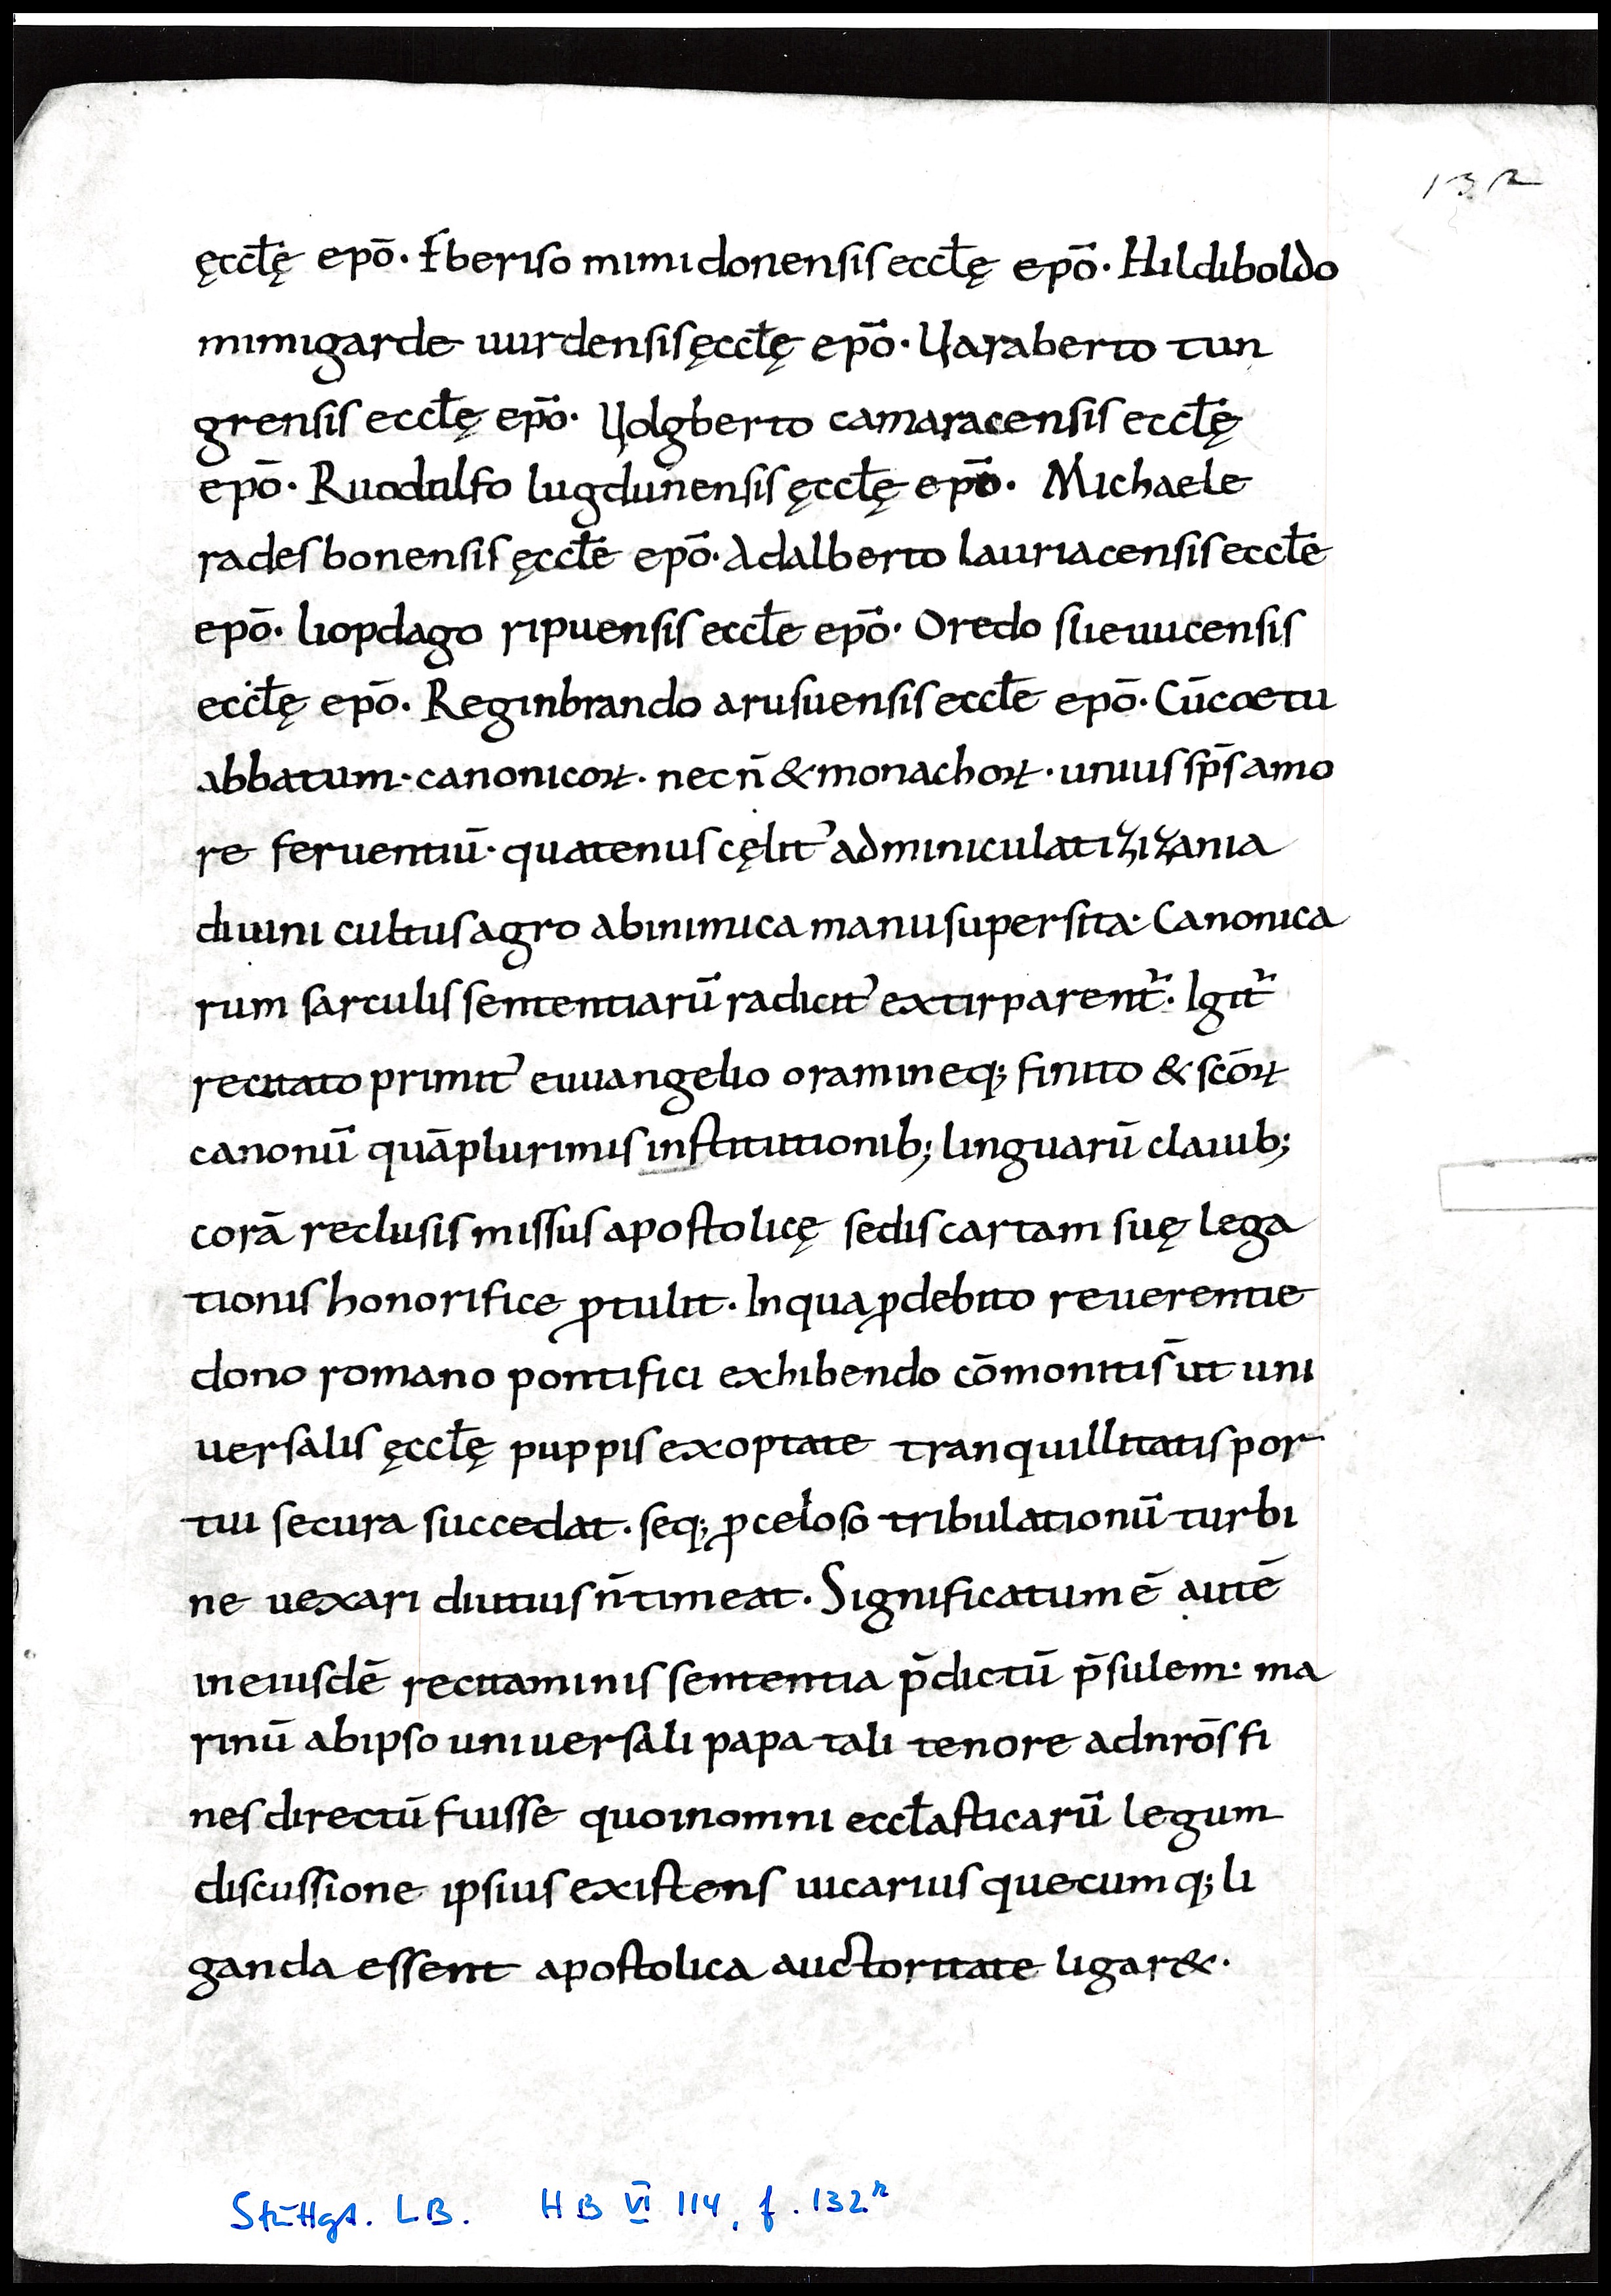 132
ęccłę epō· Eberiso mimidonensis eccłę epō· Hildiboldo
mimigarde uurdensis ęccłę epō· Uaraberto tun
grensis eccłę epō· Uolgberto camaracensis eccłę
epō· Ruodulfo lugdunensis ęccłę epō· Michaele
radesbonensis ęccłe epō· Adalberto lauriacensis eccłe
epō· liopdago ripuensis eccłe epō· Oredo slieuuicensis
eccłę epō· Reginbrando arusuensis eccłe epō· Cū coetu
abbatum· canonicoꝝ· nec n̄ & monachoꝝ· unius sp̄s amo
re feruentiū· quatenus cęlit᾽ adminiculati zizania
diuini cultus agro ab inimica manu supersita· Canonica
rum sarculis sententiarū radicit᾽ extirparent᾽· Igit᾽
recitato primit᾽ euuangelio oramineq; finito & scōꝝ
canonū quāplurimis institutionib; linguarū clauib;
corā reclusis missus apostolicę sedis cartam suę lega
tionis honorifice ꝓtulit· In qua ꝓ debito reuerentie
dono romano pontifici exhibendo cōmonitis ut uni
uersalis ęccłę puppis exoptate tranquillitatis por
tui secura succedat· seq; ꝓceloso tribulationū turbi
ne uexari diutius n̄ timeat· Significatum ē autē
in eiusdē recitaminis sententia p̄dictū p̄sulem· ma
rinū ab ipso uniuersali papa tali tenore ad nrōs fi
nes directū fuisse quo in omni eccłasticarū legum
discussione ipsius existens uicarius quecumq; li
ganda essent apostolica auctoritate ligar&·
Stuttgt. LB. HB VI 114, f. 132ʳ